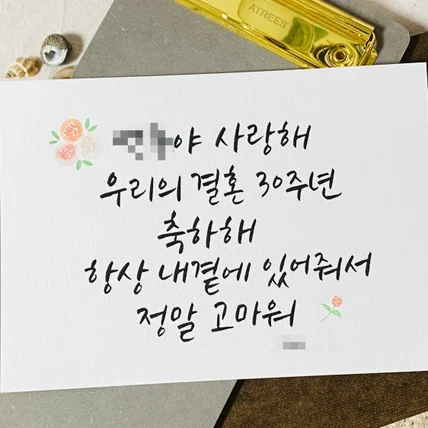 ATREES
야 사랑해
우리의 결혼 30주년
축하해
항상 내곁에 있어줘서
정말 고마워